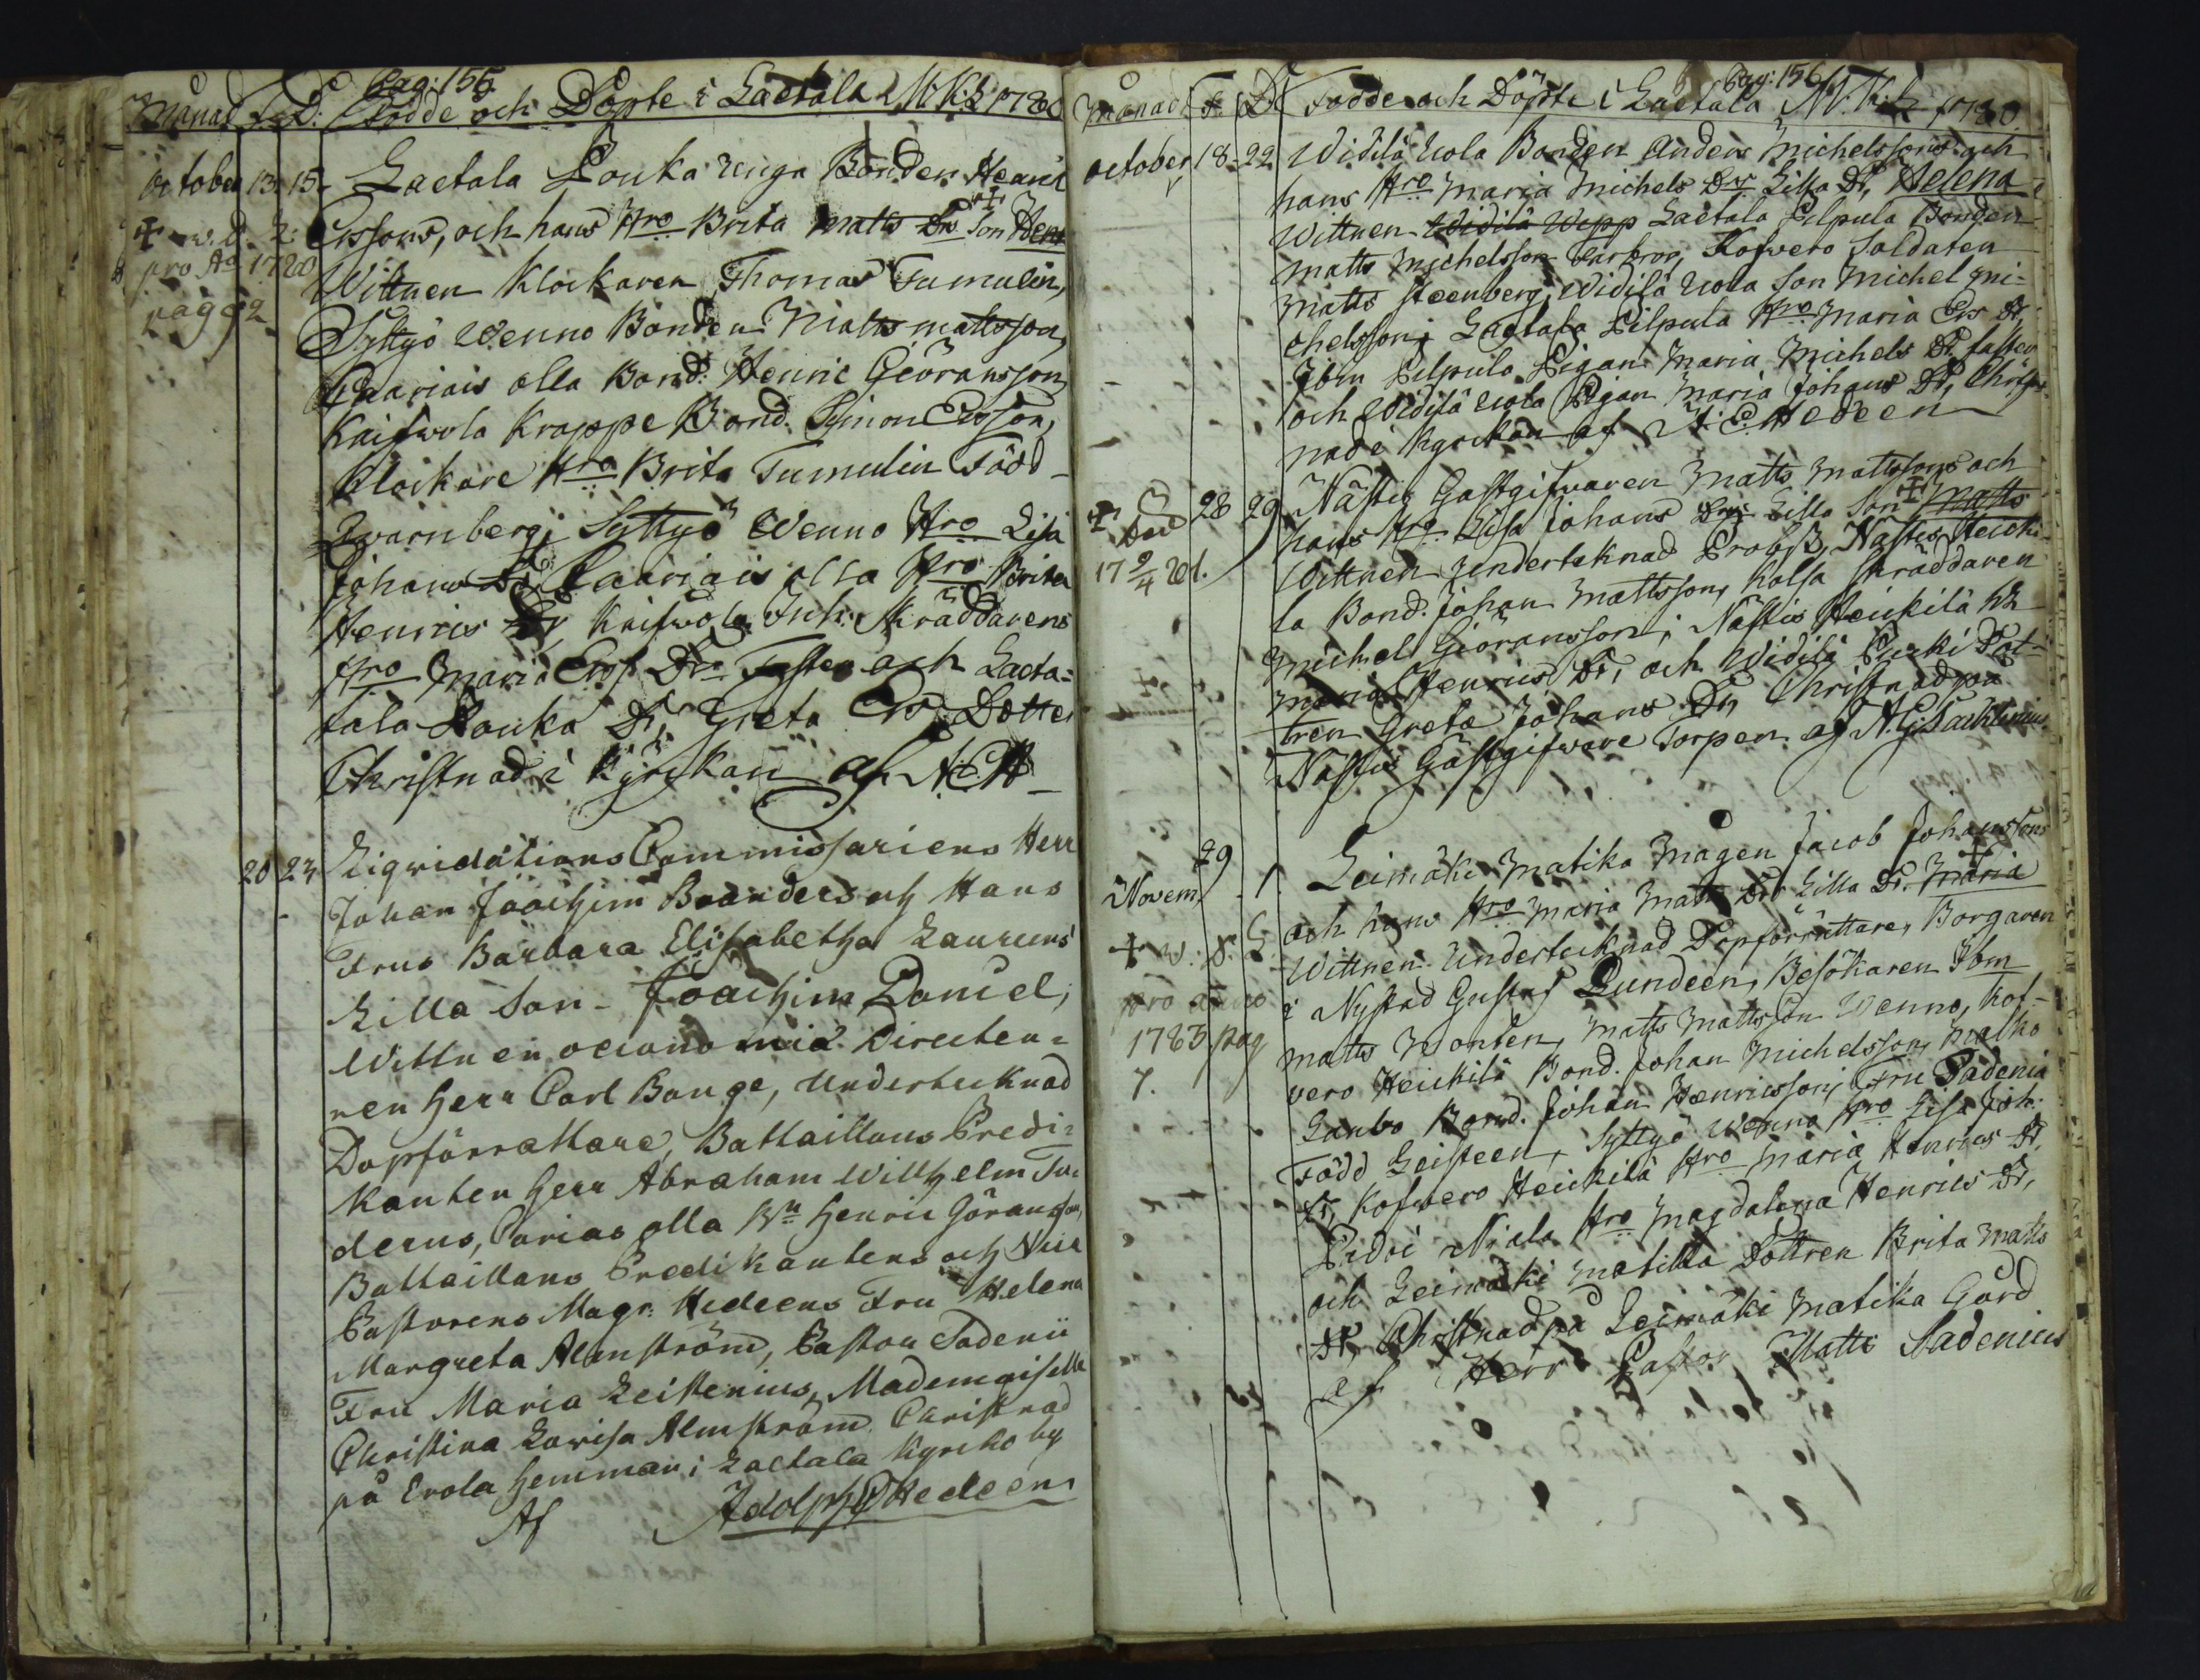 Pag: 155
Månad F: D: Födde och Döpte i Laetala M:K:S 1780
October 13. 15. Laetala Pouka unga Bonden Henric
Erssons, och hans Hro Brita Matts Dr Son Henr
✝ v. d. 2:
pro Ao 1780
pag 92
Wittnen Klockaren Thomas Tumulin,
Syttyö Wenno Bonden Matts Mattsson,
Caariais olla Bond: Henric Giöransson
Kaifwola Krappe Bond. Simon Ersson,
Klockare Hro Brita Tumulin Född
Qvarnberg; Syttyö Wenno Hro Lisa
Johans Dr Caariais olla Hro Brita
Henrics Dr, Kaifwola Inh: Skräddarens
Hro Maria Ers Dr och Laeta=
tala Pouka Dr Greta Ers Dotter
Christnad i Kyrckan af
20 23 Liqvidations Commissariens Herr
Johan Joachim Branders och Hans
Frus Barbara Elisabetha Laurens
Lilla Son - Joachim Daniel,
Wittnen oeconomiæ Directeu=
ren Herr Carl Bange, Undertecknad
Dopförrättare, Battaillons Predi=
kanten Herr Abraham Willhelm Tu=
derus, Carias olla Bn Henric Göransson,
Battaillons Predikantens och Vice
Pastorens Magr: Hedeens Fru Helena
Margreta Almström, Pastor Sadenii
Fru Maria Leistenius, Mademoiselle
Christina Lovisa Almström. Christnad
på Erola Hemman i Laetala Kyrcko by
Af Adolph E Hedeen
Pag: 156
Månad F: D: Födde och Döpte i Laetala M:K:S 1780
October 18 - 22 Widilä Uola Bonden Anders Michelssons och
hans Hro Maria Michels Drs Lilla Dr, Helena
Wittnen Widilä Wepp Laetala Pilpula Bonden
Matts Michelsson Farbror, Kofwero Soldaten
Matts Steenberg, Widilä Uola Son Michel Mi=
chelsson; Laetala Pilpula Hro Maria Ers Dr,
Ibm Pilpula Pigan Maria Michels Dr faster
och Widilä Uola Pigan Maria Johans Dr, Christ=
nad i Kyrckan af A: E: Hedeen
✝ död 28 29 Nästis Gästgifwaren Matts Mattssons och
17 2/4 81. hans Hro Lisa Johans Drs Lilla Son Matts
Wittnen Undertecknad Probst, Nästis Heicki=
la Bond. Johan Mattsson, Kalsa Skräddaren
Michel Giöransson; Nästis Heickilä
Maria Henrics Dr, och Widilä Puski Dot=
tren Greta Johans Dr, Christnad på
Nästis Gästgifware Torpen af
29
Novem 1. Leimäki Matika Mågen Jacob Johanssons
och hans Hro Maria Matts Drs Lilla Dr. Maria
✝ v: 8.
pro anno
1783 pag
7.
Wittnen Undertecknad Dopförrättare, Borgaren
i Nystad Gustaf Lundeen, Besökaren Ibm
Matts Monten, Matts Mattsson Wenno, Kof=
vero Heickilä Bond. Johan Michelsson, Malko
Launo Bond. Johan Henricsson; Fru Sadenia
Född Leisteen, Syttyö Wenno Hro Lisa Joh:
Dr, Kofwero Heickilä Hro Maria Henrics Dr,
Niala Hro Magdalena Henrics Dr,
och Leimäki Matika Dottren Brita Matts
Dr, Christnad på Leimäki Matika Gård
af Herr Pastor Matts Sadenius